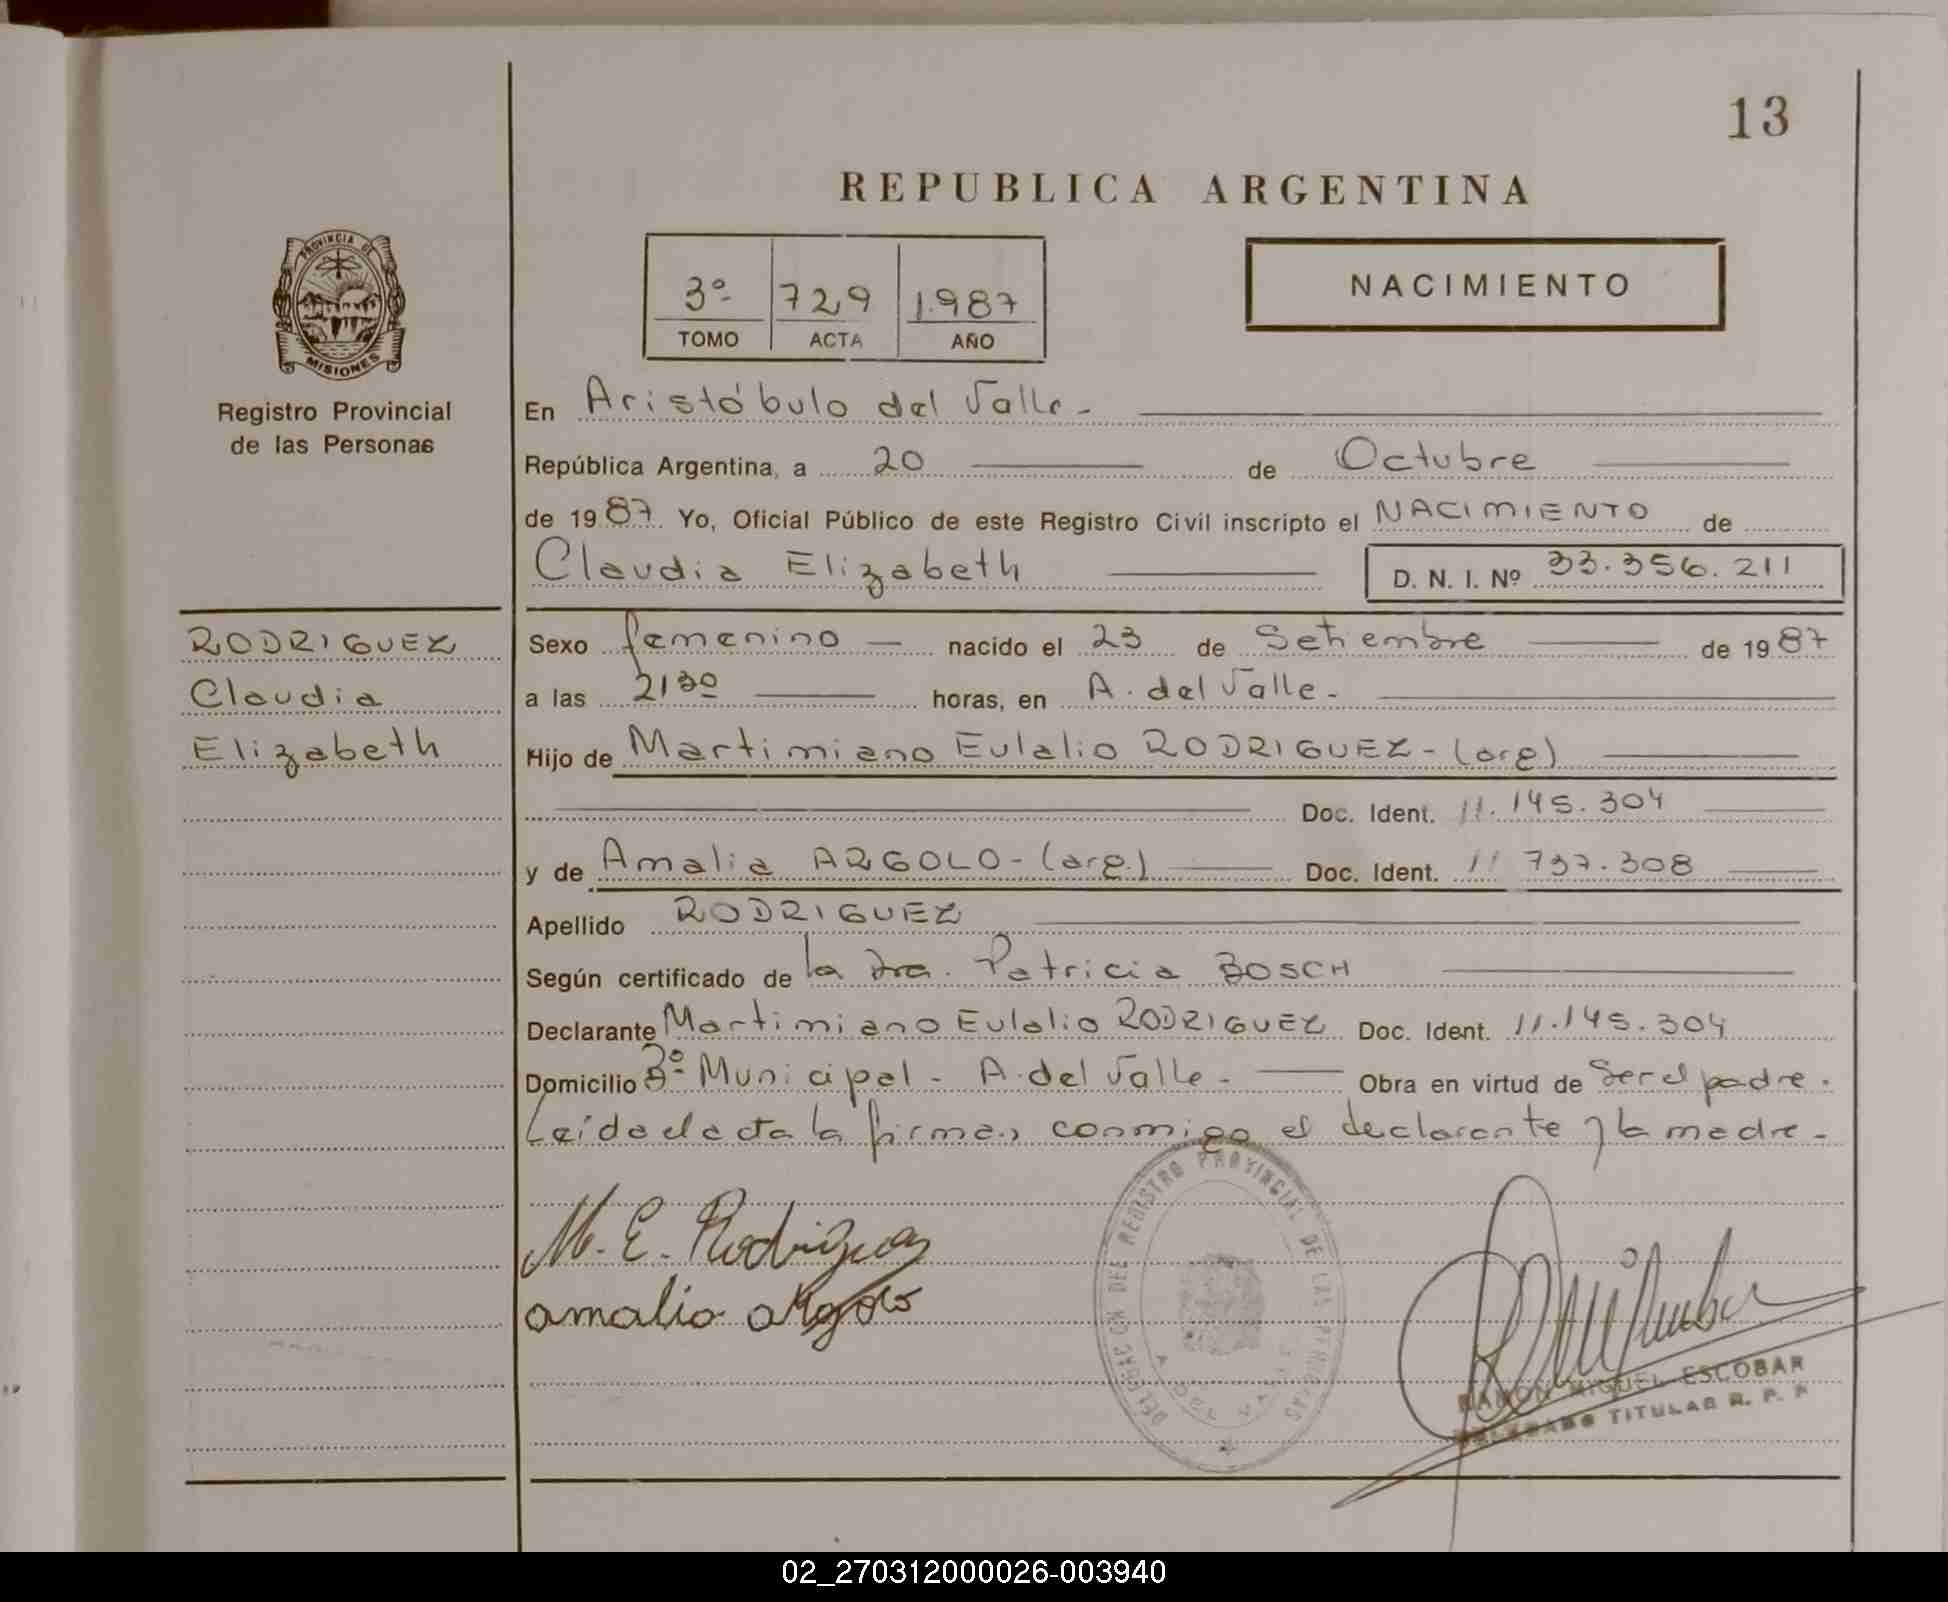 13
REPUBLICA ARGENTINA
PROVINCIA DE
MISIONES
Registro Provincial
de las Personas
3º 729 1.987
TOMO ACTA AÑO
NACIMIENTO
En Aristóbulo del Valle.-
República Argentina, a 20 de Octubre
de 1987. Yo, Oficial Público de este Registro Civil inscripto el NACIMIENTO de
Claudia Elizabeth D. N. I. Nº 33.356.211
RODRIGUEZ
Claudia
Elizabeth
Sexo femenino — nacido el 23 de Setiembre de 1987
a las 2130 horas, en A. del Valle.-
Hijo de Martimiano Eulalio RODRIGUEZ - (arg)
Doc. Ident. 11.145.304
y de Amalia ARGOLO - (arg.) Doc. Ident. 11 737.308
Apellido RODRIGUEZ
Según certificado de la Dra. Patricia BOSCH
Declarante Martimiano Eulalio RODRIGUEZ Doc. Ident. 11.145.304
Domicilio Bº Municipal - A. del Valle - Obra en virtud de Ser el padre.
Leída el acta la firman conmigo el declarante y la madre.-
M. E. Rodriguez
amalia argolo
DELEGACION DEL REGISTRO PROVINCIAL DE LAS PERSONAS
A. DEL VALLE
RAMON MIGUEL ESCOBAR
DELEGADO TITULAR R. P. P
02_270312000026-003940